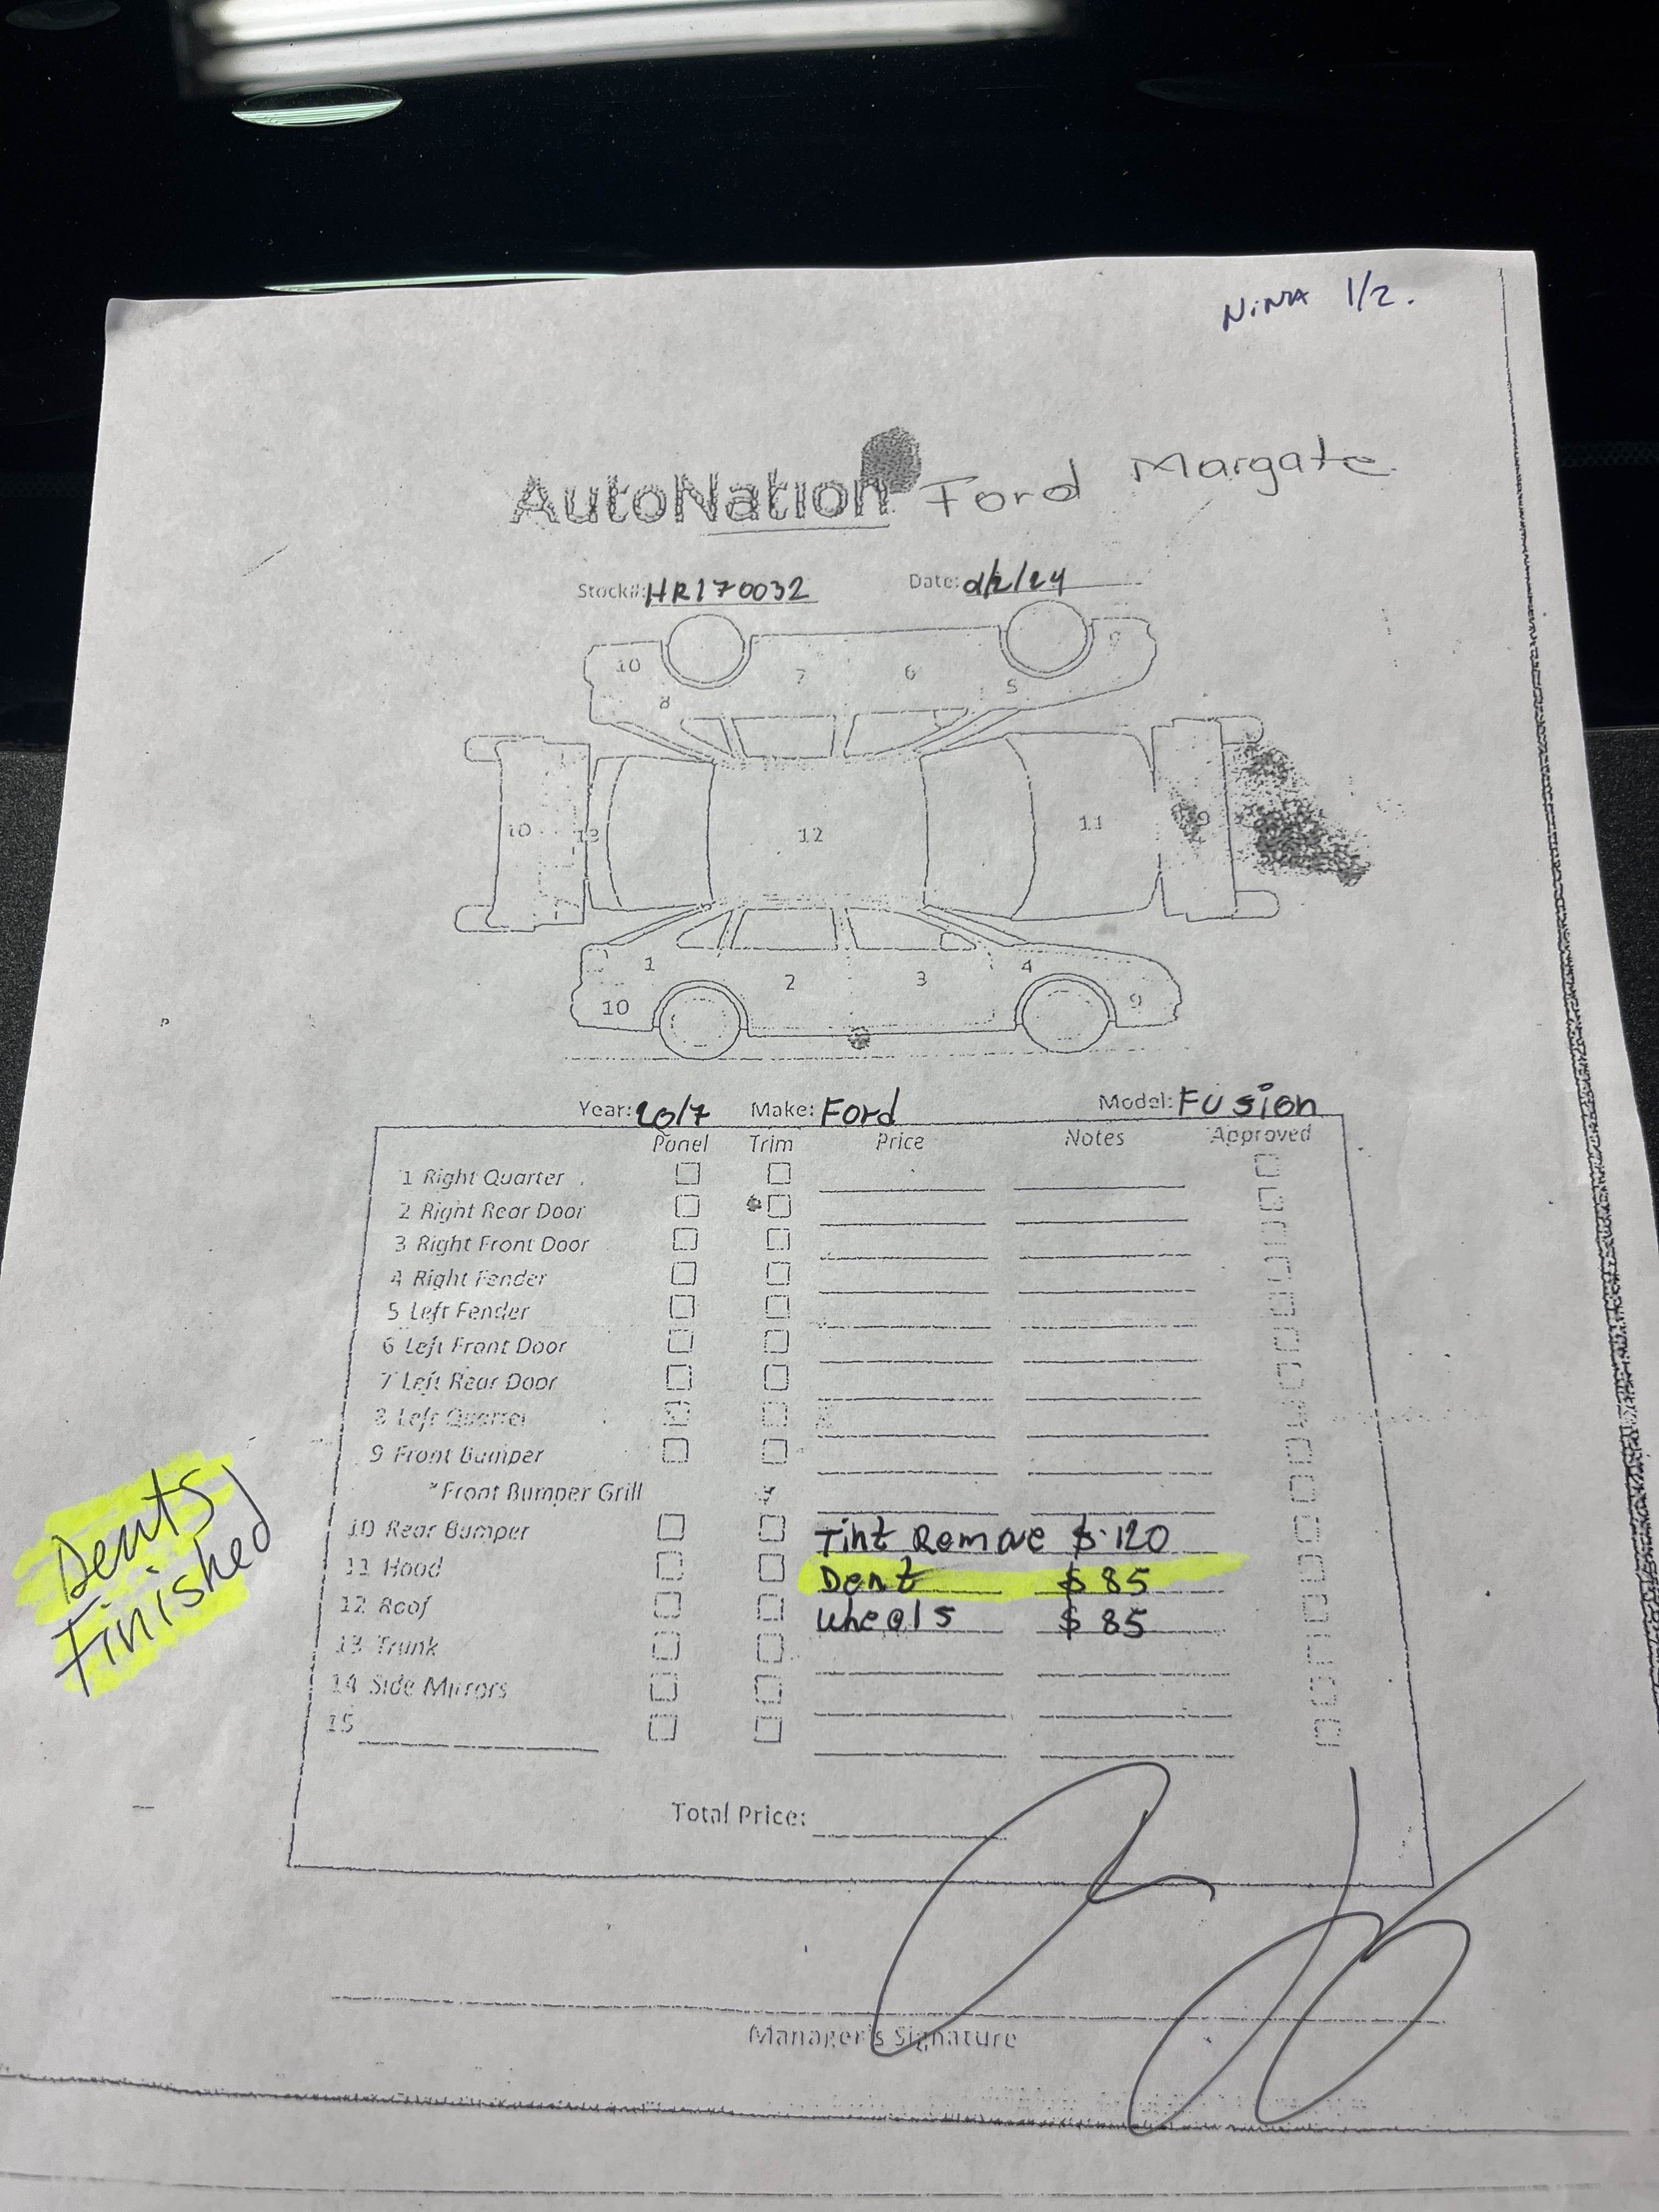 NiNA 1/2.
AutoNation Ford Margate
Stock#: HR170032 Date: 2/24
10 7 6 5 9
8
10 13 12 11 9
1 2 3 4
10 9
Year: 2017 Make: Ford Model: Fusion
Panel Trim Price Notes Approved
1 Right Quarter
2 Right Rear Door
3 Right Front Door
4 Right Fender
5 Left Fender
6 Left Front Door
7 Left Rear Door
8 Left Quarter
9 Front Bumper
*Front Bumper Grill
10 Rear Bumper Tint Remove $120
11 Hood Dent $85
12 Roof Wheels $85
13 Trunk
14 Side Mirrors
15
Dents
Finished
Total Price:
Manager's Signature